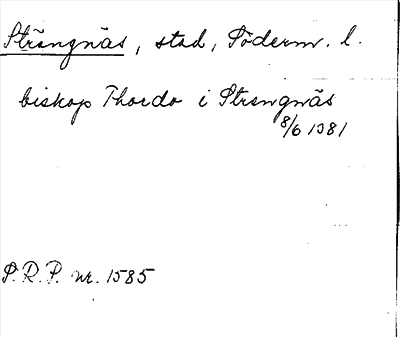 Strängnäs, stad, Söderm. l.
biskop Thordo i Strengnäs
8/6 1381
S.R.P. nr. 1585